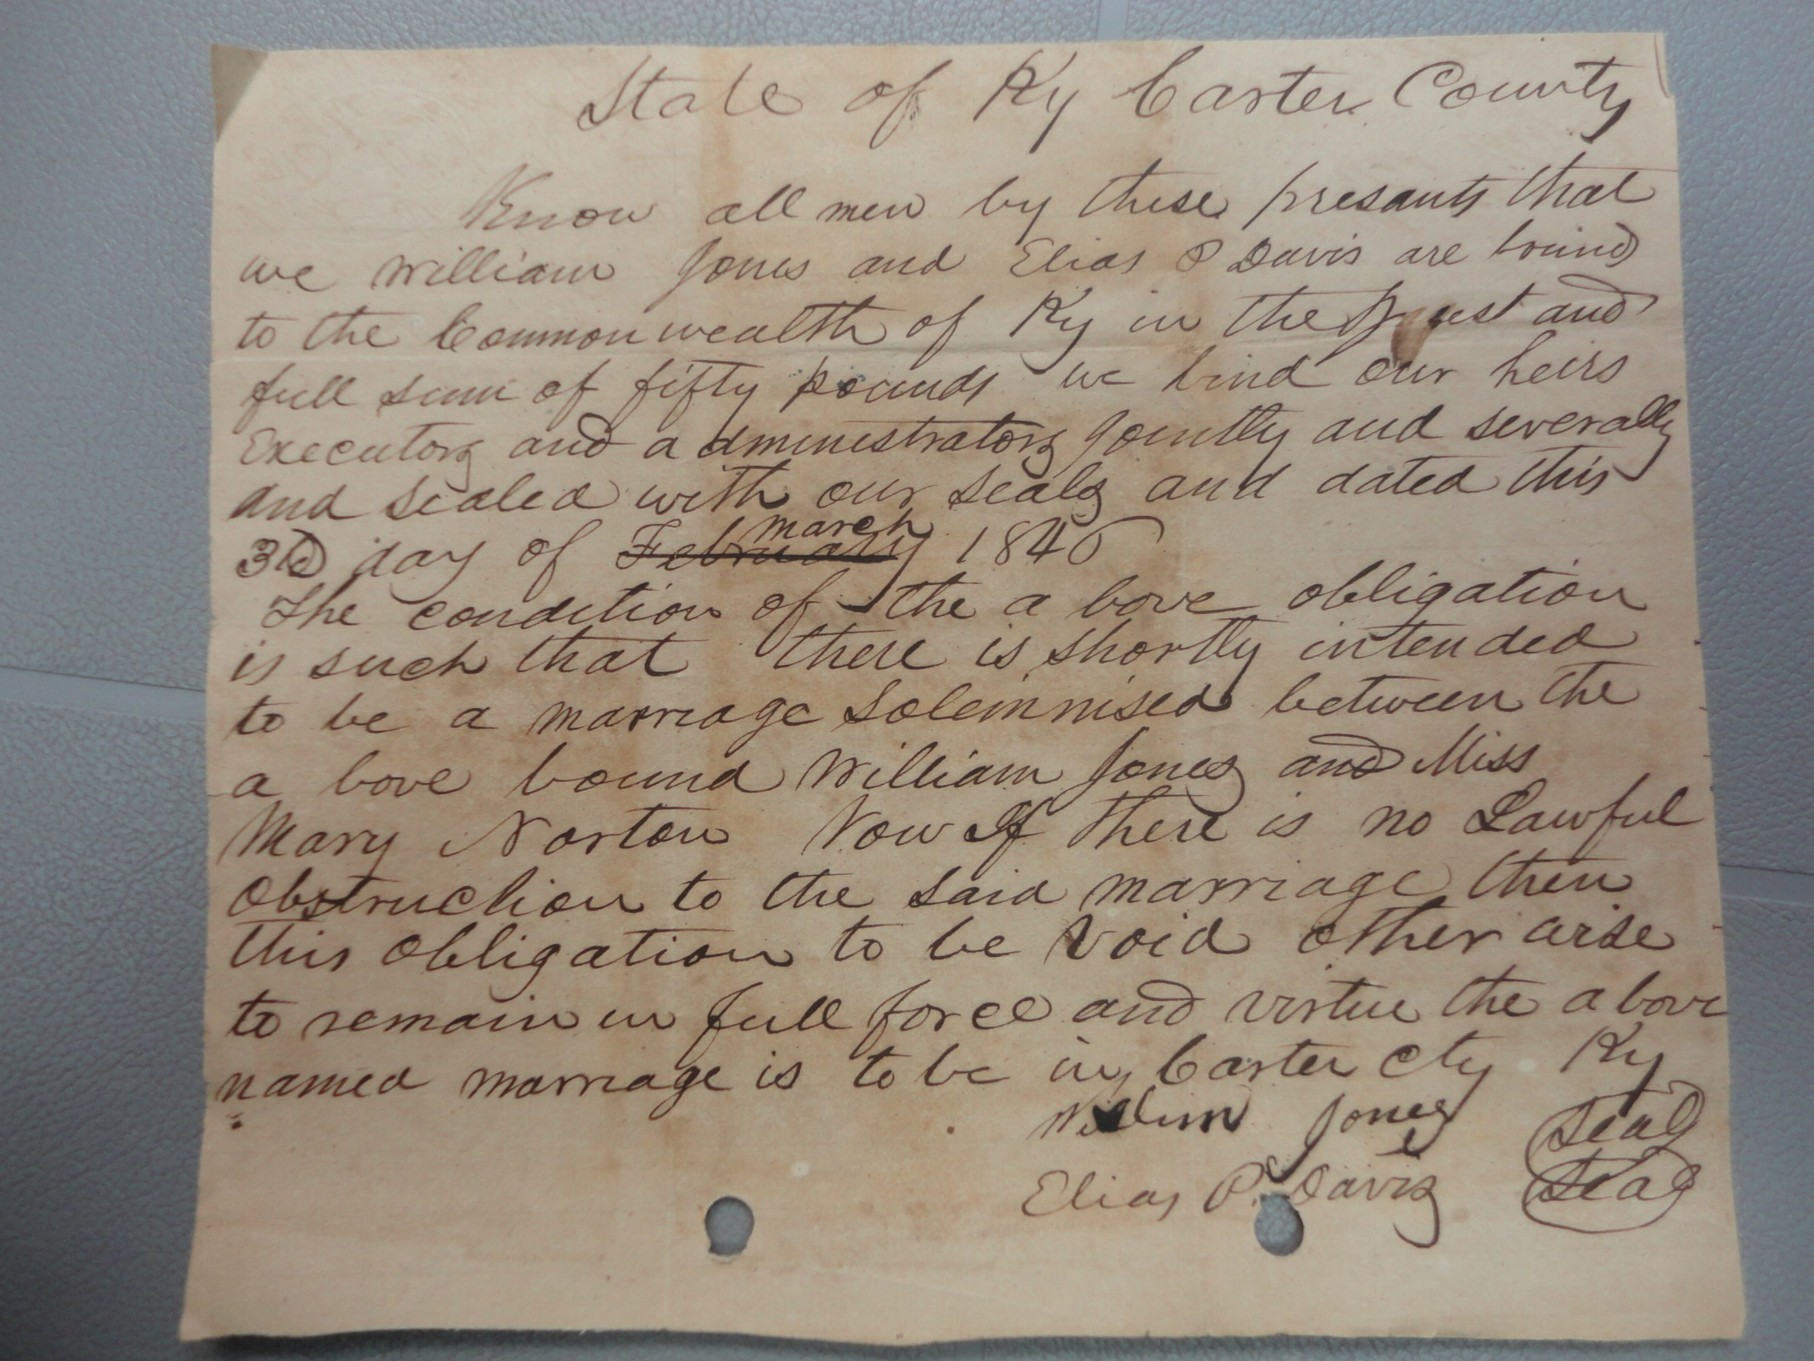 State of Ky Carter County
Know all men by these presants that
we William Jones and Elias P Davis are bound
to the Commonwealth of Ky in the just and
full sum of fifty pounds we bind our heirs
Executors and administrators Jointly and severally
and sealed with our seals and dated this
3td day of February march 1846
The condition of the a bove obligation
is such that there is shortly intended
to be a marriage Solemnised between the
a bove bound William Jones and Miss
Mary Norton Now If there is no Lawful
Obstruction to the said marriage then
this obligation to be void other arise
to remain in full force and virtue the above
named marriage is to be in Carter Cty Ky
William Jones Seal
Elias P. Davis Seal